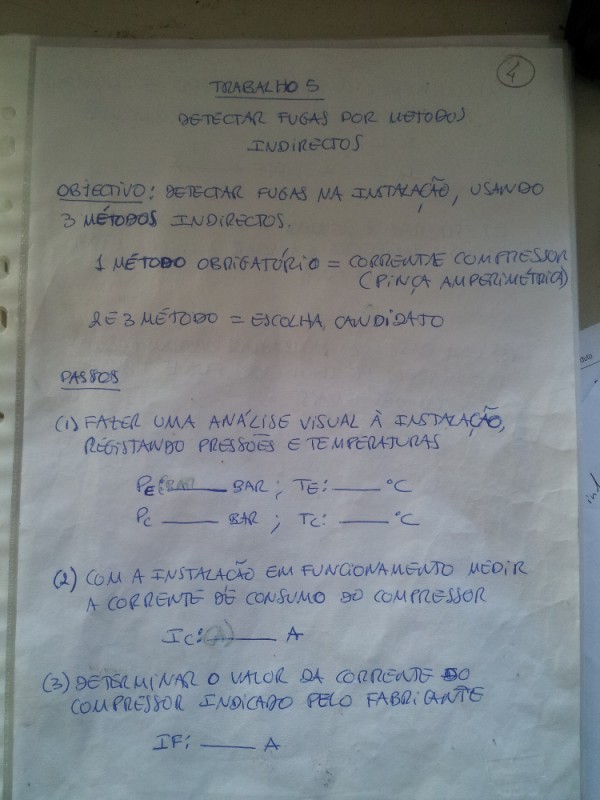 4
TRABALHO 5
DETECTAR FUGAS POR METODOS
INDIRECTOS
OBJECTIVO: DETECTAR FUGAS NA INSTALAÇÃO, USANDO
3 MÉTODOS INDIRECTOS.
1 MÉTODO OBRIGATÓRIO = CORRENTE COMPRESSOR
(PINÇA AMPERIMÉTRICA)
2 E 3 MÉTODO = ESCOLHA CANDIDATO
PASSOS
(1) FAZER UMA ANÁLISE VISUAL À INSTALAÇÃO,
REGISTANDO PRESSOES E TEMPERATURAS
PE: BAR ____ BAR ; TE: ____ °C
PC ____ BAR ; TC: ____ °C
(2) COM A INSTALAÇÃO EM FUNCIONAMENTO MEDIR
A CORRENTE DE CONSUMO DO COMPRESSOR
IC: (A) ____ A
(3) DETERMINAR O VALOR DA CORRENTE DO
COMPRESSOR INDICADO PELO FABRICANTE
IF: ____ A